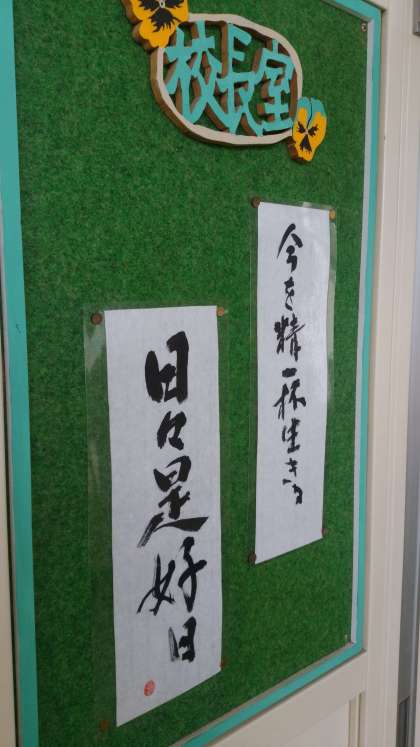 校長室
今を精一杯生きる
日々是好日